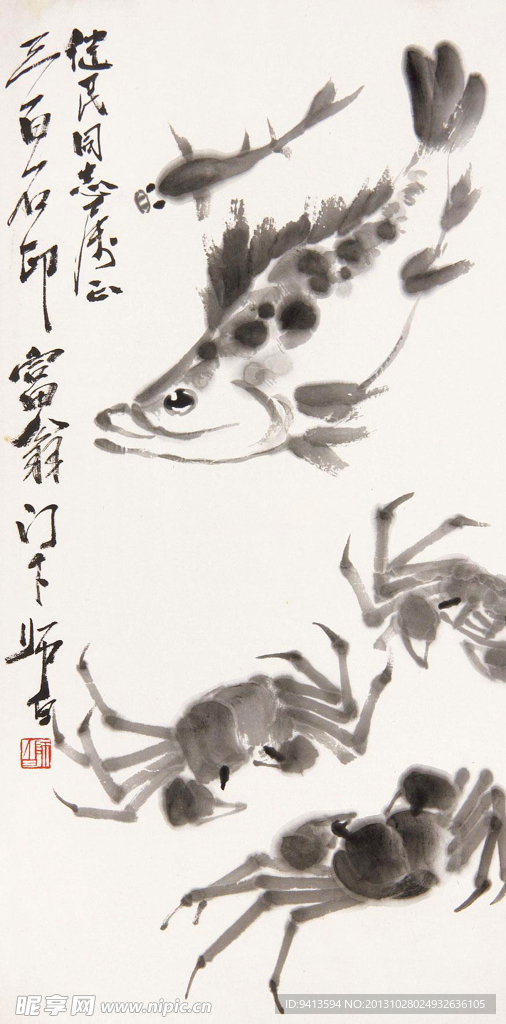 民同志属正
三百石印富翁门下师白
昵享网 www.nipic.cn
ID:9413594 NO:20131028024932636105